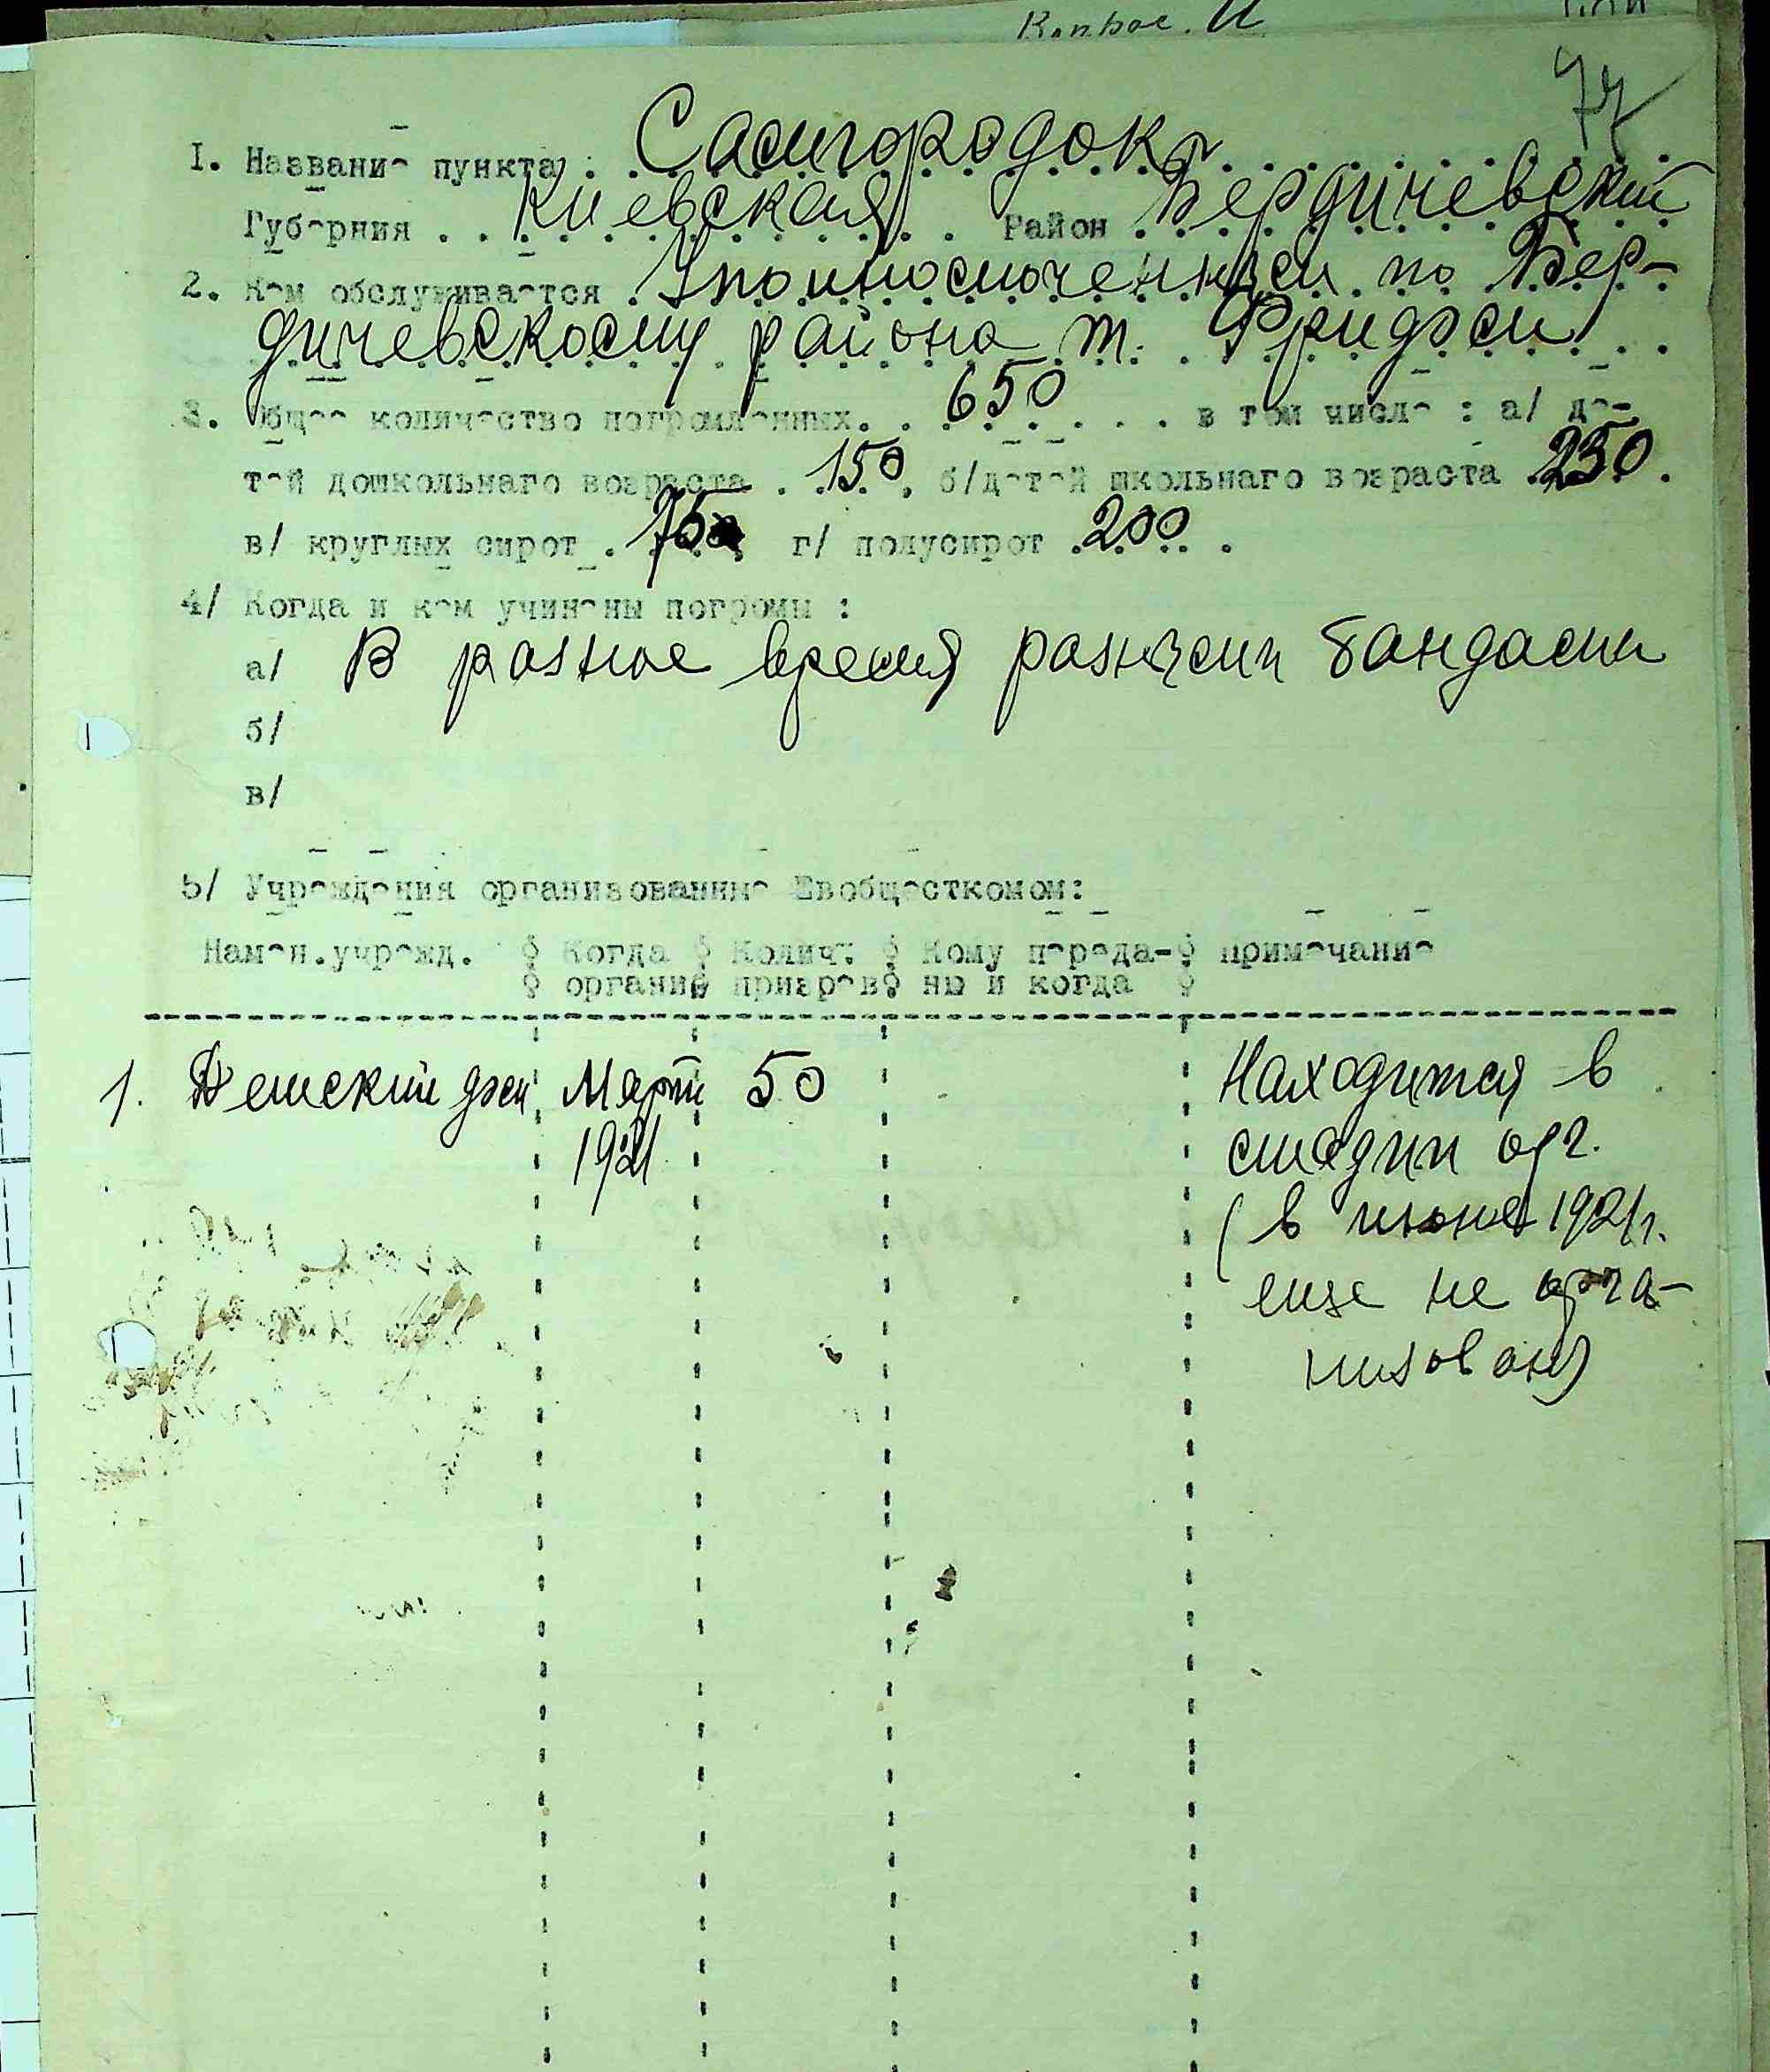 77
1. Название пункта : Самгородокъ
Губерния . . Киевская . Район . Бердичевский
2. Кем обслуживается . Уполномоченным по Бер-
дичевскому района т. Фридман
3. Общее количество погромленных. . 650 . . . в том числе : а/ де-
тей дошкольнаго возраста . 150 . б/детей школьнаго возраста . 250 .
в/ круглых сирот . 75 г/ полусирот . 200 .
4/ Когда и кем учинены погромы :
а/ В разное время разными бандами
б/
в/
5/ Учреждения организованные Евобщесткомом:
Намен.учрежд. Когда Колич: Кому переда- примечание
органи призрев ны и когда
1. Детский дом Март 50 Находится в
1921 стадии орг.
( в июне 1921г.
еще не орга-
низован)